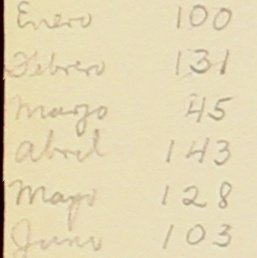 Enero 100
Febrero 131
Marzo 45
Abril 143
Mayo 128
Junio 103